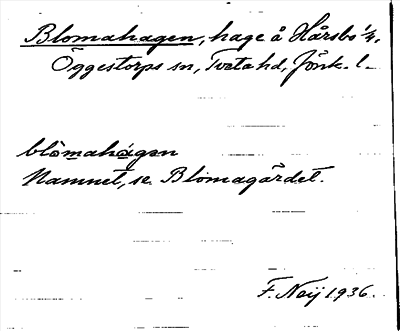 Blomahagen, hage å Hårsbo 1/4,
Öggestorps sn, Tveta hd, Jönk. l.
blòmahàgen
Namnet, se Blomagärdet.
F. Neij 1936.